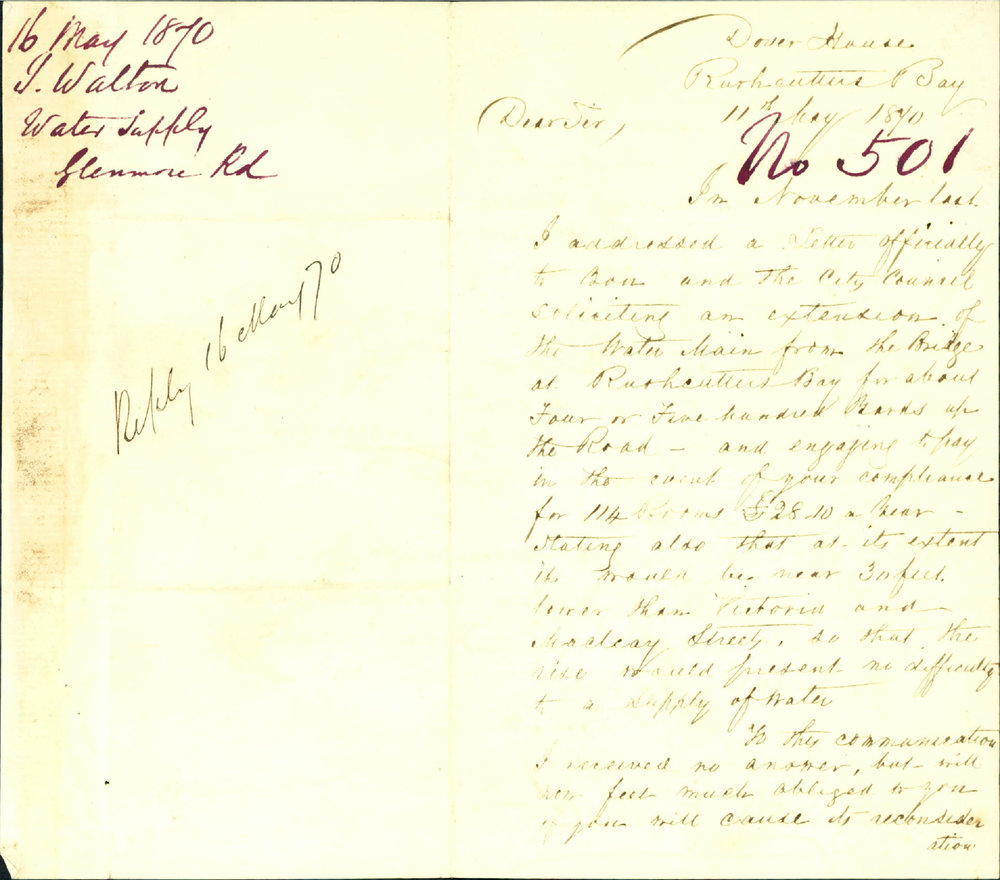 16 May 1870
J. Walton
Water Supply
Glenmore Rd
Reply 16 May 70
Dover House
Rushcutters Bay
11th May 1870
No 501
Dear Sir,
In November last
I addressed a Letter officially
to You and the City Council
Soliciting an extension of
the Water Main from the Bridge
at Rushcutters Bay for about
Four or Five hundred Yards up
the Road - and engaging to pay
in the event of your compliance
for 114 Rooms £28.10 a Year -
Stating also that at its extent
it would be near 30 feet
lower than Victoria and
Macleay Streets, so that the
rise would present no difficulty
to a Supply of Water
To this communication
I received no answer, but will
now feel much obliged to you
if you will cause its reconsider
ation